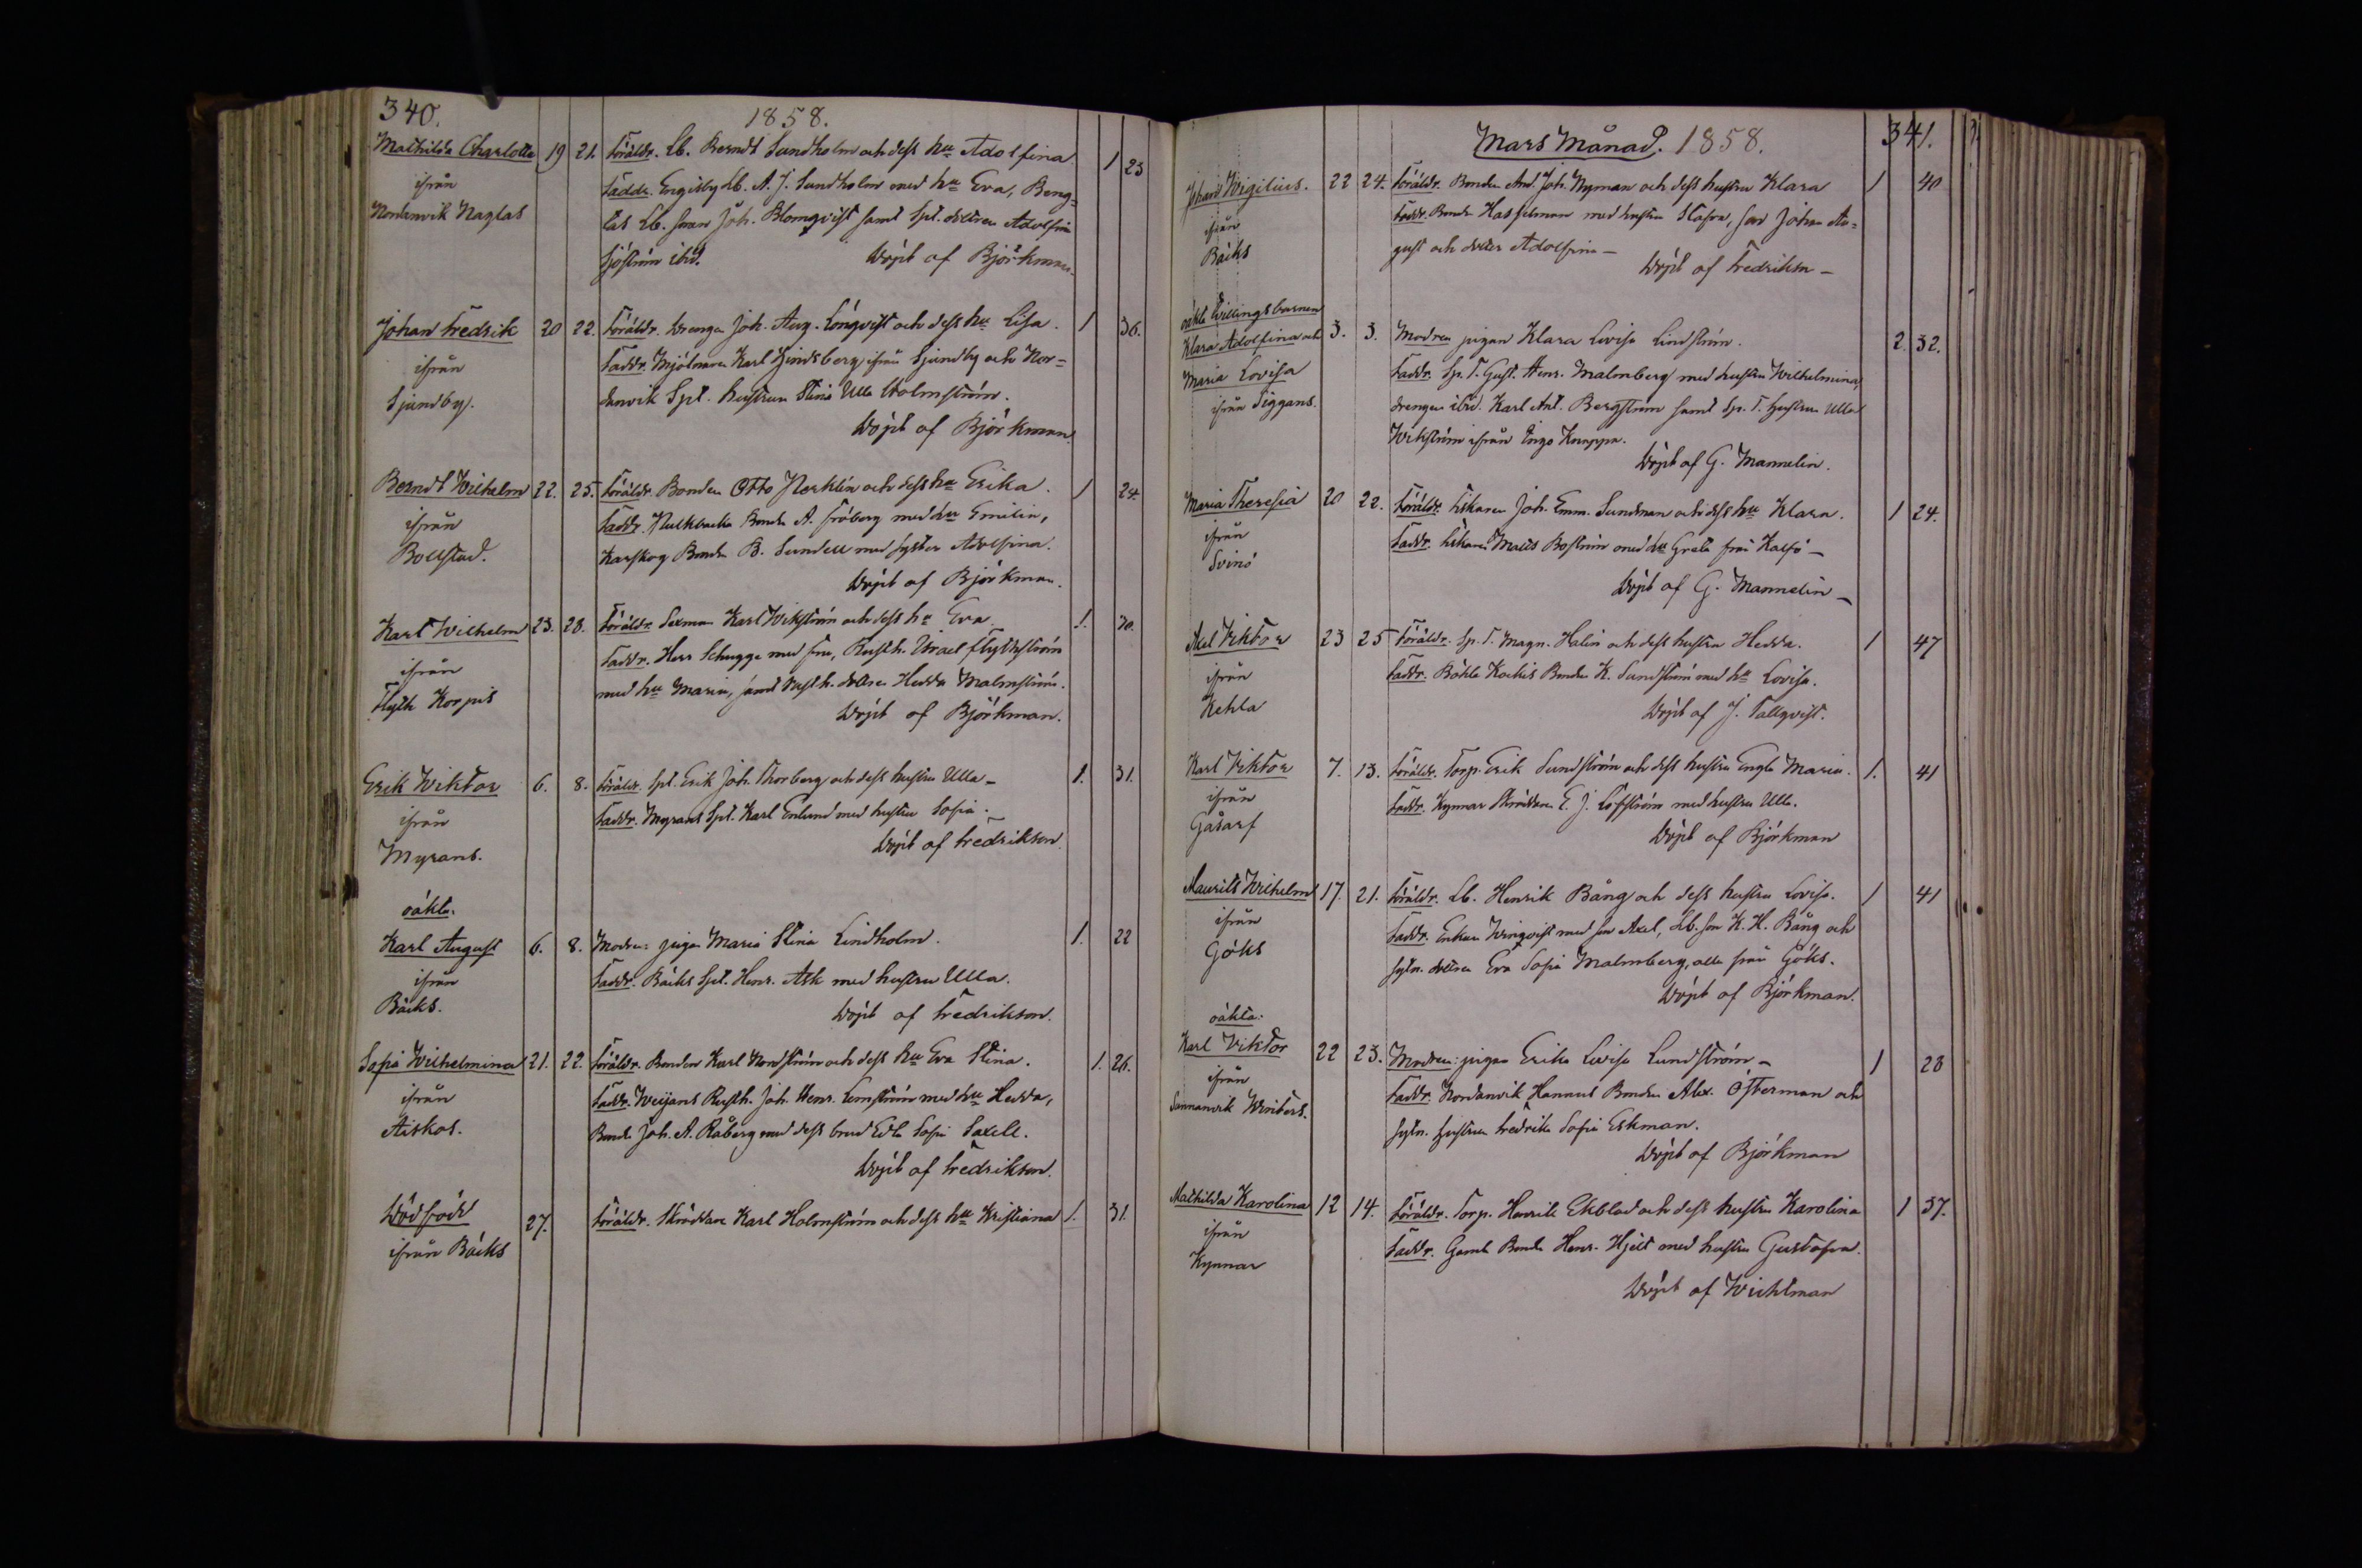 340.
1858.
Mathilda Charlotta 19 21. Föräldr. Lb. Berndt Sundholm och dess hu Adolfina 1 23
ifrån Faddr. Engisby Lb. A. J. Sundholm med hu Eva, Beng=
Nordanvik Naglas Lb. Joh. Blomqvist samt Spt. dottren Adolfin
Sjöström ibid. Döpt af Björkman.
Johan Fredrik 20 22. Föräldr. Drengen Joh. Aug. Lönqvist och dess hu Lisa. 1 36.
ifrån Faddr. Mjölnaren Karl Lindsberg ifrån Sjundby och Nor=
Sjundby. danvik Spt. hustrun Stina Ulla Holmström.
Döpt af Björkman.
Berndt Wilhelm 22. 25. Föräldr. Bonden Otto Nerklin och dess hu Erika. 1 24.
ifrån Faddr. Bonde A. Fröberg med hu Emilia,
Bollstad. Karskog Bonde B. Sundell med syster Adolfina.
Döpt af Björkman.
Karl Wilhelm 23. 28. Föräldr. Sexman Karl Wikström och dess hu Eva 1. 30.
ifrån Faddr. Herr Schugge med fru, Rusth. Israel Flythström
Flyth Korpis med hu Maria, samt Rusth. dottren Hedda Malmström.
Döpt af Björkman.
Erik Wiktor 6. 8. Föräldr. Spt. Erik Joh. Thorberg och dess hustru Ulla - 1. 31.
ifrån Faddr. Myrans Spt. Karl Enlund med hustru Sofia.
Myrans. Döpt af Fredrikson.
oäkta.
Karl August 6. 8. Modren: pigan Maria Stina Lindholm. 1. 22
ifrån Faddr. Bäcks Spt. Henr. Ask med hustru Ulla.
Bäcks. Döpt af Fredrikson.
Sofia Wilhelmina 21. 22. Föräldr. Bonden Karl Nordström och dess hu Eva Stina. 1. 26.
ifrån Faddr. Weijans Rusth. Joh. Henr. Lemström med hu Hedda,
Aiskos. Bonde Joh. A. Råberg med dess brud Edla Sofia Saxell.
Döpt af Fredrikson.
Dödfödt 27. Föräldr. Skräddare Karl Holmström och dess hu Kristiana 1. 31.
ifrån Bäcks
Mars Månad. 1858. 341.
Johan Wigilius. 22 24. Föräldr. Bonden And. Joh. Nyman och dess hustru Klara 1 40
ifrån Faddr. Bonde Hasselman med hustru Stafva, son Johan Au=
Bäcks gust och dotter Adolfina -
Döpt af Fredrikson -
oäkta Tvillingsbarnen
Klara Adolfina och 3. 3. Modren pigan Klara Lovisa Lindström. 2. 32.
Maria Lovisa Faddr. Sp. T. Gust. Henr. Malmberg med hustru Wilhelmina,
ifrån Siggans. drengen ibid. Karl Ant. Bergström samt Sp. T. hustrun Ulla
Wikström ifrån Ingo Knappa.
Döpt af G. Mannelin.
Maria Theresia 20 22. Föräldr. Fiskaren Joh. Emm. Sundman och dess hu Klara. 1 24.
ifrån Faddr. Fiskaren Matts Boström med hu Greta från Kalfö -
Svinö Döpt af G. Mannelin -
Axel Viktor 23 25 Föräldr. Sp. T. Magn. Halin och dess hustru Hedda. 1 47
ifrån Faddr. Böhle Kockis Bonden K. Sundström med hu Lovisa.
Kehla Döpt af J. Tallqvist.
Karl Viktor 7. 13. Föräldr. Torp. Erik Sundström och dess hustru Engla Maria. 1. 41
ifrån Faddr. Kynnar Skräddaren E. J. Löfström med hustru Ulla.
Gåsarf Döpt af Björkman
Maurits Wilhelm 17. 21. Föräldr. Lb. Henrik Bång och dess hustru Lovisa. 1 41
ifrån Faddr. Enkan Winqvist med son Axel, Lb. son K. H. Bång och
Göks sytn. dottren Eva Sofia Malmberg, alla från Göks.
Döpt af Björkman.
oäkta.
Karl Viktor 22 23. Modren: pigan Erika Lovisa Lundström - 1 28
ifrån Faddr. Nordanvik Hannus Bonden Alex. Österman och
Sannanvik Winters. sytn. hustrun Fredrika Sofia Eskman.
Döpt af Björkman
Mathilda Karolina 12 14. Föräldr. Torp. Henrik Ekblad och dess hustru Karolina 1 37.
ifrån Faddr. Gamla Bonde Henr. Hjelt med hustru Gustafva.
Kynnar Döpt af Wichtman